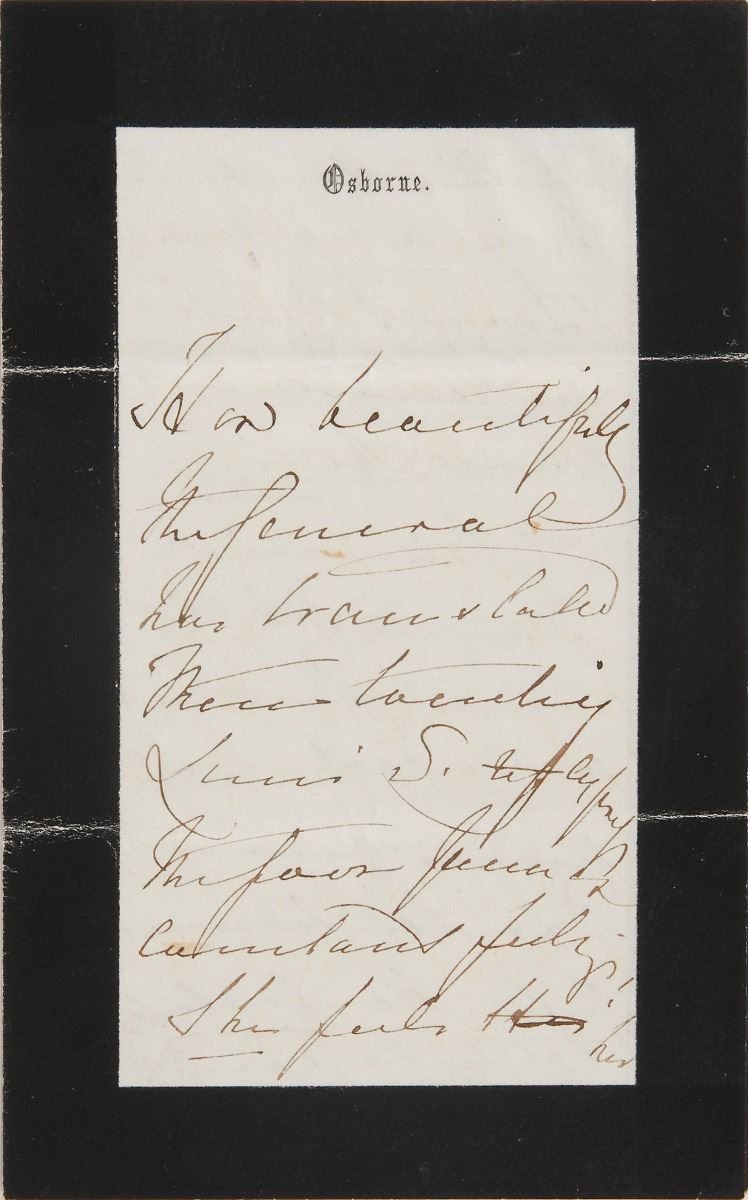 Osborne.
How beautifully
the General
has translated
these touching
Lines
the poor Queen's
constant feeling;
She feels her